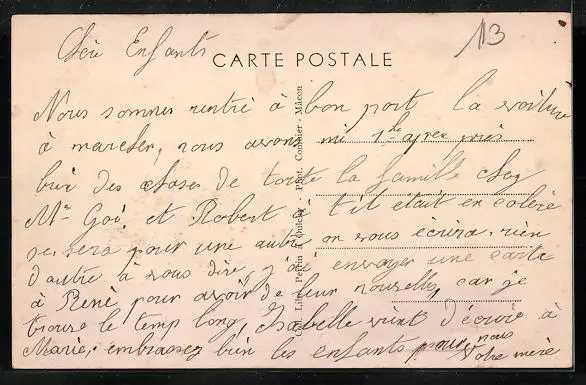 113
Chère Enfants
CARTE POSTALE
Nous sommes rentré à bon port la voiture
à marcher, nous avons mi 1he apeu près
bien des choses de toute la famille chez
Mr Goé et Robert à t'il était en colère
se sera pour une autre on vous écrira, rien
d'autre à vous dire, j'ai envoyer une carte
à René pour avoir de leur nouvelles, car je
trouve le temp long, Isabelle vient d'écrire à
Marie, embrassez bien les enfants pour nous
votre mère
Phot. Combier - Mâcon